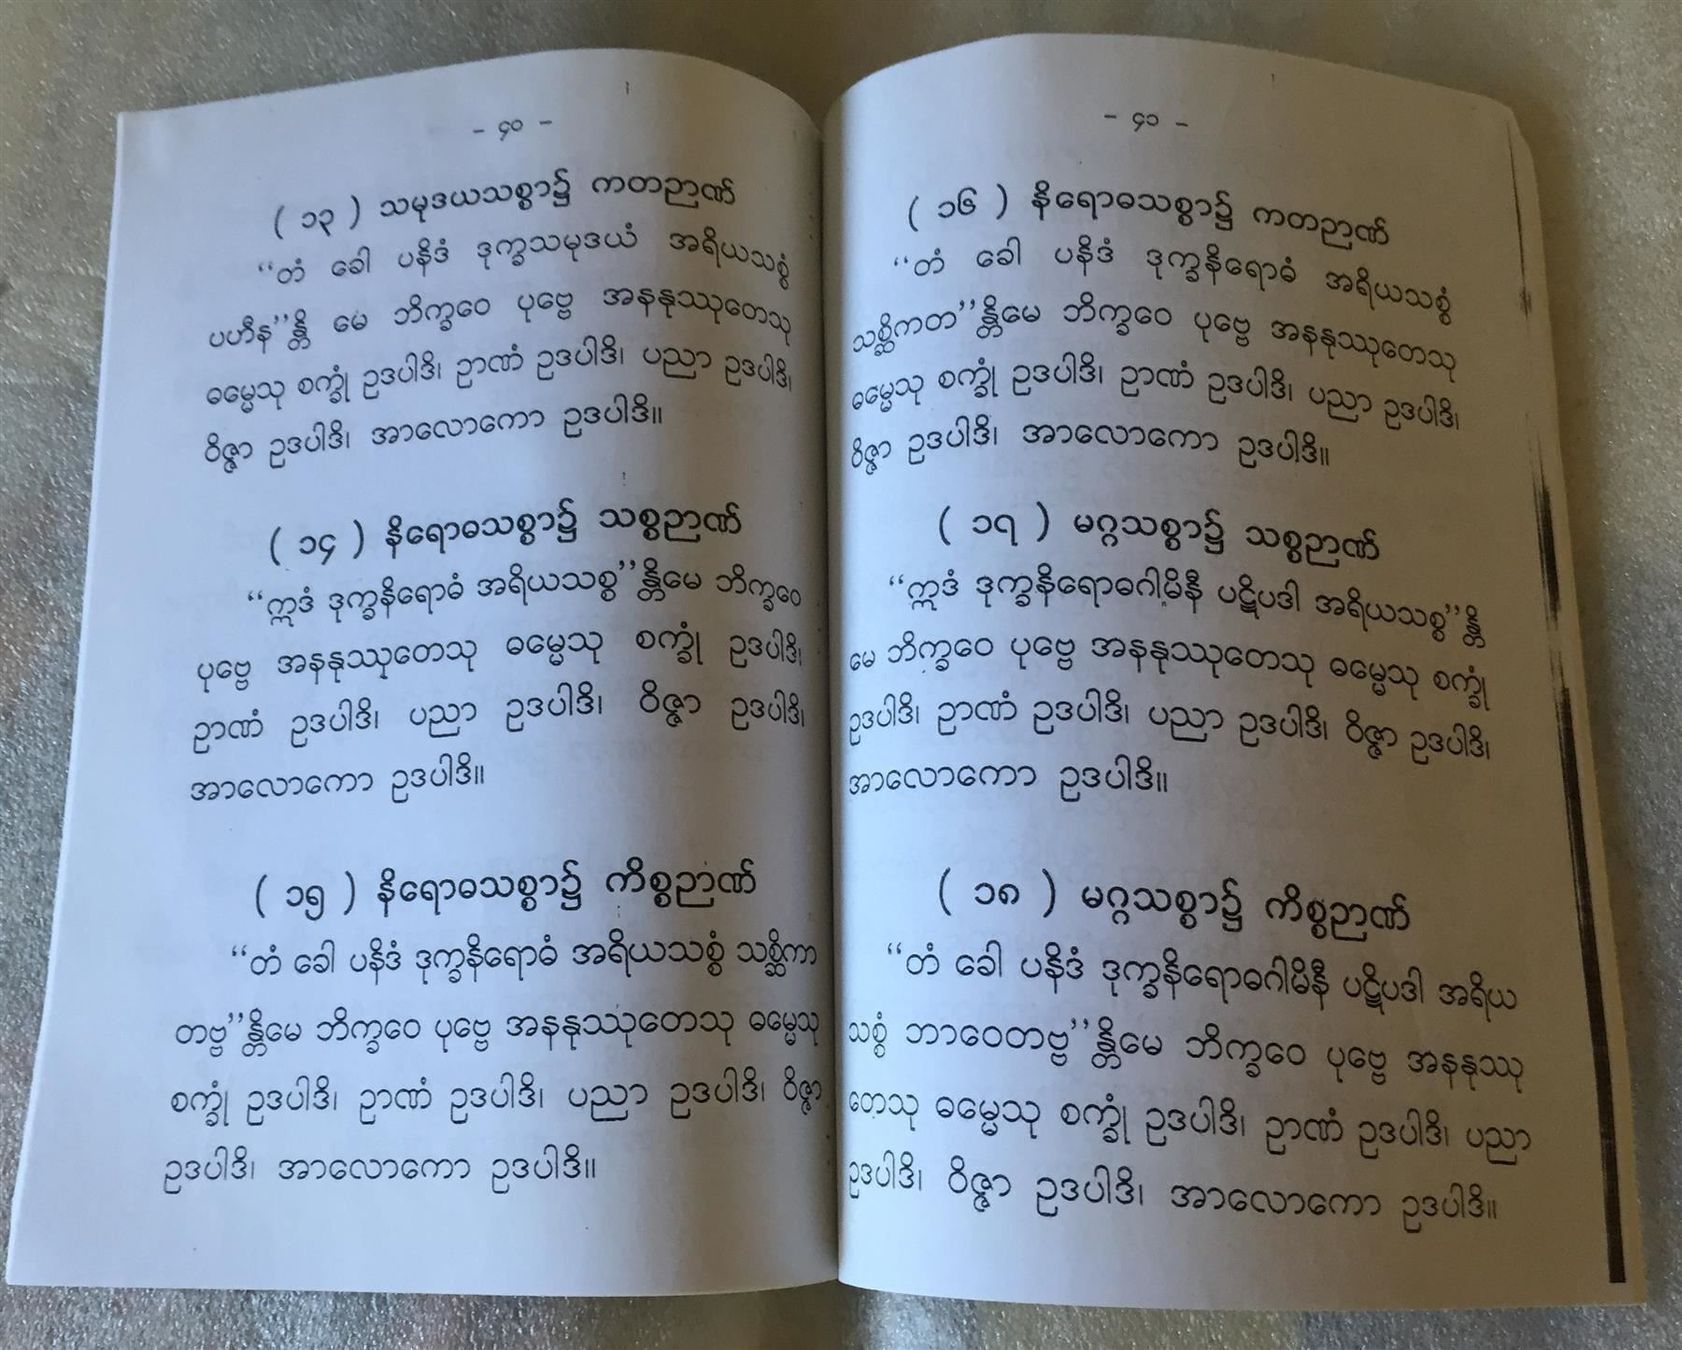 - ၄၀ -
( ၁၃ ) သမုဒယသစ္စာ၌ ကတဉာဏ်
“တံ ခေါ ပနိဒံ ဒုက္ခသမုဒယံ အရိယသစ္စံ
ပဟီန”န္တိ မေ ဘိက္ခဝေ ပုဗ္ဗေ အနနုဿုတေသု
ဓမ္မေသု စက္ခုံ ဥဒပါဒိ၊ ဉာဏံ ဥဒပါဒိ၊ ပညာ ဥဒပါဒိ၊
ဝိဇ္ဇာ ဥဒပါဒိ၊ အာလောကော ဥဒပါဒိ။
( ၁၄ ) နိရောဓသစ္စာ၌ သစ္စဉာဏ်
“ဣဒံ ဒုက္ခနိရောဓံ အရိယသစ္စ”န္တိမေ ဘိက္ခဝေ
ပုဗ္ဗေ အနနုဿုတေသု ဓမ္မေသု စက္ခုံ ဥဒပါဒိ၊
ဉာဏံ ဥဒပါဒိ၊ ပညာ ဥဒပါဒိ၊ ဝိဇ္ဇာ ဥဒပါဒိ၊
အာလောကော ဥဒပါဒိ။
( ၁၅ ) နိရောဓသစ္စာ၌ ကိစ္စဉာဏ်
“တံ ခေါ ပနိဒံ ဒုက္ခနိရောဓံ အရိယသစ္စံ သစ္ဆိကာ
တဗ္ဗ”န္တိမေ ဘိက္ခဝေ ပုဗ္ဗေ အနနုဿုတေသု ဓမ္မေသု
စက္ခုံ ဥဒပါဒိ၊ ဉာဏံ ဥဒပါဒိ၊ ပညာ ဥဒပါဒိ၊ ဝိဇ္ဇာ
ဥဒပါဒိ၊ အာလောကော ဥဒပါဒိ။
- ၄၁ -
( ၁၆ ) နိရောဓသစ္စာ၌ ကတဉာဏ်
“တံ ခေါ ပနိဒံ ဒုက္ခနိရောဓံ အရိယသစ္စံ
သစ္ဆိကတ”န္တိမေ ဘိက္ခဝေ ပုဗ္ဗေ အနနုဿုတေသု
ဓမ္မေသု စက္ခုံ ဥဒပါဒိ၊ ဉာဏံ ဥဒပါဒိ၊ ပညာ ဥဒပါဒိ၊
ဝိဇ္ဇာ ဥဒပါဒိ၊ အာလောကော ဥဒပါဒိ။
( ၁၇ ) မဂ္ဂသစ္စာ၌ သစ္စဉာဏ်
“ဣဒံ ဒုက္ခနိရောဓဂါမိနီ ပဋိပဒါ အရိယသစ္စ”န္တိ
မေ ဘိက္ခဝေ ပုဗ္ဗေ အနနုဿုတေသု ဓမ္မေသု စက္ခုံ
ဥဒပါဒိ၊ ဉာဏံ ဥဒပါဒိ၊ ပညာ ဥဒပါဒိ၊ ဝိဇ္ဇာ ဥဒပါဒိ၊
အာလောကော ဥဒပါဒိ။
( ၁၈ ) မဂ္ဂသစ္စာ၌ ကိစ္စဉာဏ်
“တံ ခေါ ပနိဒံ ဒုက္ခနိရောဓဂါမိနီ ပဋိပဒါ အရိယ
သစ္စံ ဘာဝေတဗ္ဗ”န္တိမေ ဘိက္ခဝေ ပုဗ္ဗေ အနနုဿု
တေသု ဓမ္မေသု စက္ခုံ ဥဒပါဒိ၊ ဉာဏံ ဥဒပါဒိ၊ ပညာ
ဥဒပါဒိ၊ ဝိဇ္ဇာ ဥဒပါဒိ၊ အာလောကော ဥဒပါဒိ။